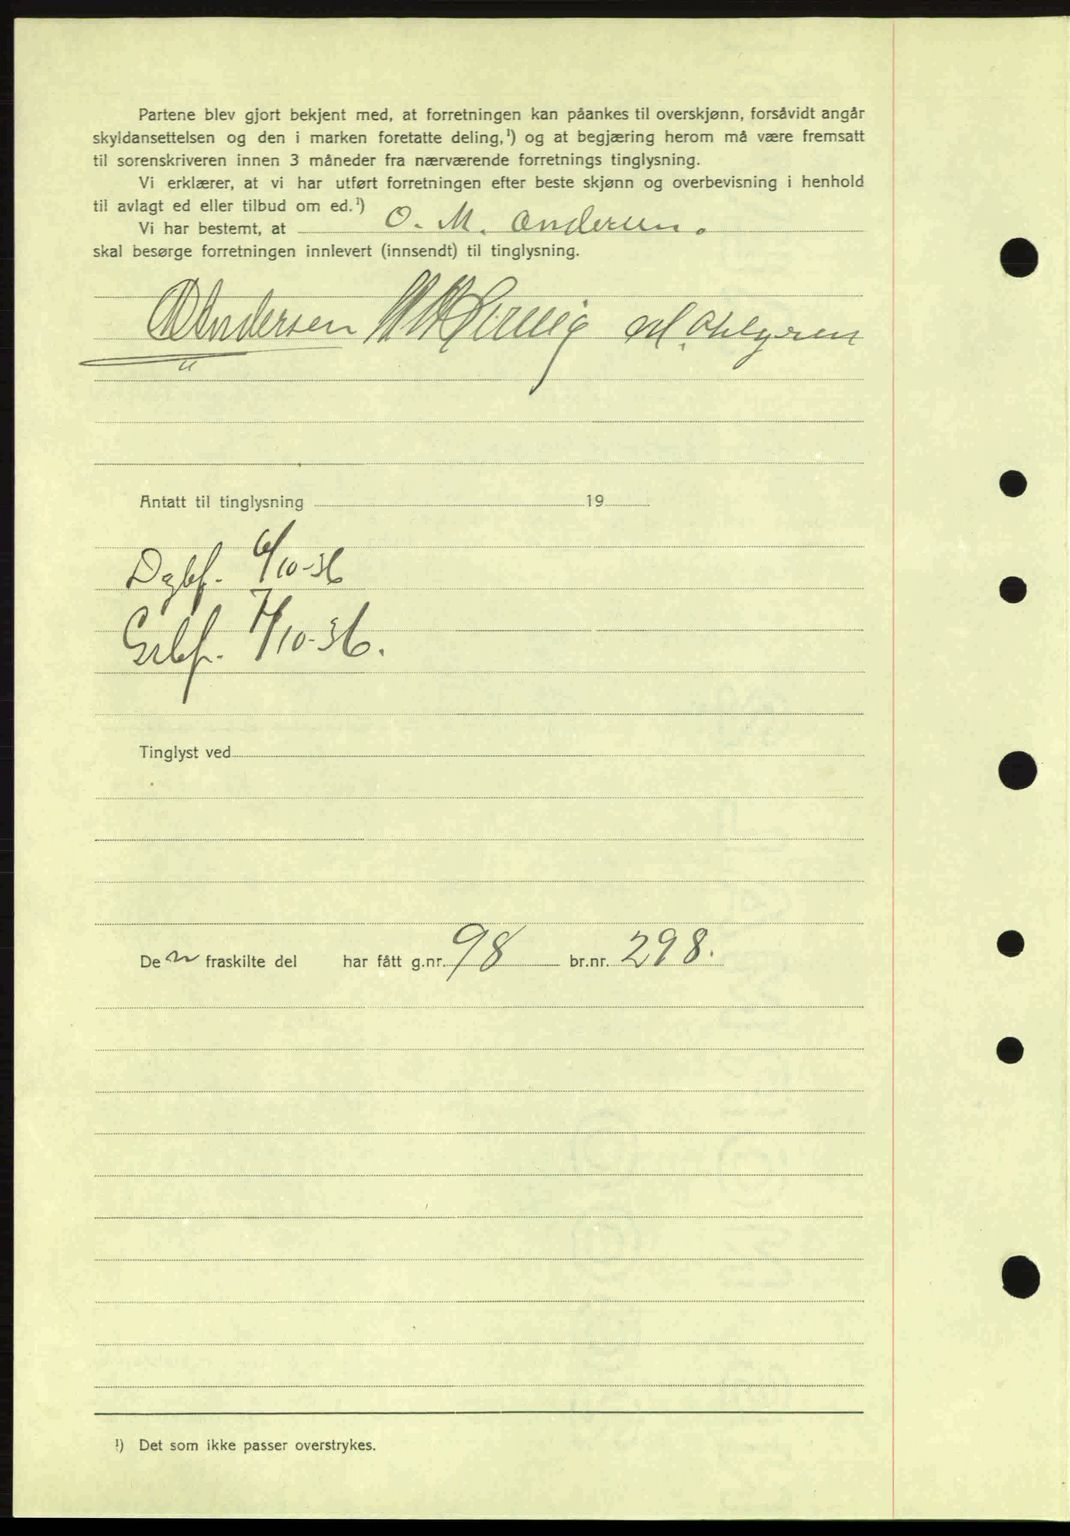 Partene blev gjort bekjent med, at forretningen kan påankes til overskjønn, forsåvidt angår
skyldansettelsen og den i marken foretatte deling,¹) og at begjæring herom må være fremsatt
til sorenskriveren innen 3 måneder fra nærværende forretnings tinglysning.
Vi erklærer, at vi har utført forretningen efter beste skjønn og overbevisning i henhold
til avlagt ed eller tilbud om ed.¹)
Vi har bestemt, at O. M. Andersen.
skal besørge forretningen innlevert (innsendt) til tinglysning.
Andersen M. Ahlgren
Antatt til tinglysning 19
Dagbf. 6/10-36
Grbf. 7/10-36.
Tinglyst ved
De n fraskilte del har fått g.nr. 98 br.nr. 298.
¹) Det som ikke passer overstrykes.